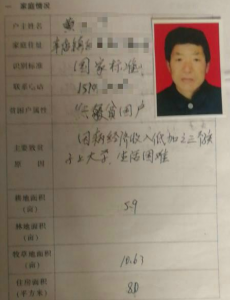 一 家庭情况
户主姓名
家庭住址
识别标准 国家标准
联系电话
贫困户属性 一般贫困户
主要致贫
原因
因病经济收入低加上三个孩
子上大学，生活困难
耕地面积
（亩）
5.9
林地面积
（亩）
牧草地面积
（亩）
10.67
住房面积
（平方米）
80